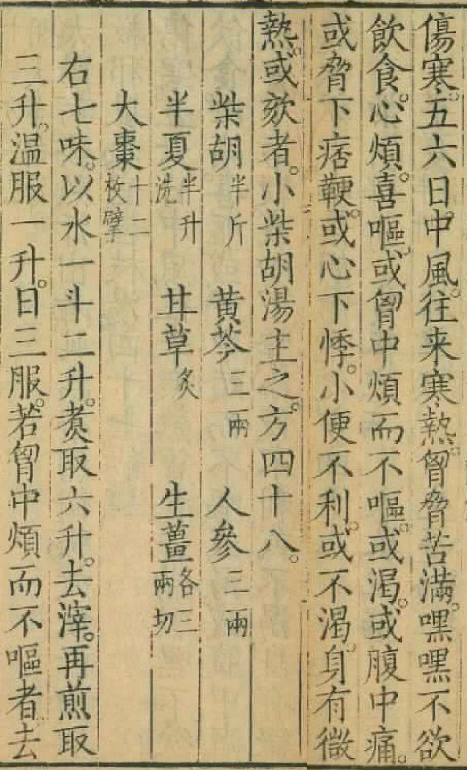 傷寒。五六日。中風。往来寒熱。胷脅苦滿。嘿嘿不欲
飲食。心煩。喜嘔。或胷中煩而不嘔。或渴。或腹中痛。
或脅下痞鞕。或心下悸。小便不利。或不渴。身有微
熱。或欬者。小柴胡湯主之。方四十八。
柴胡半斤 黃芩三兩 人參三兩
半夏半升洗 甘草炙 生薑各三兩切
大棗十二枚擘
右七味。以水一斗二升。煑取六升。去滓。再煎取
三升。温服一升。日三服。若胷中煩而不嘔者。去